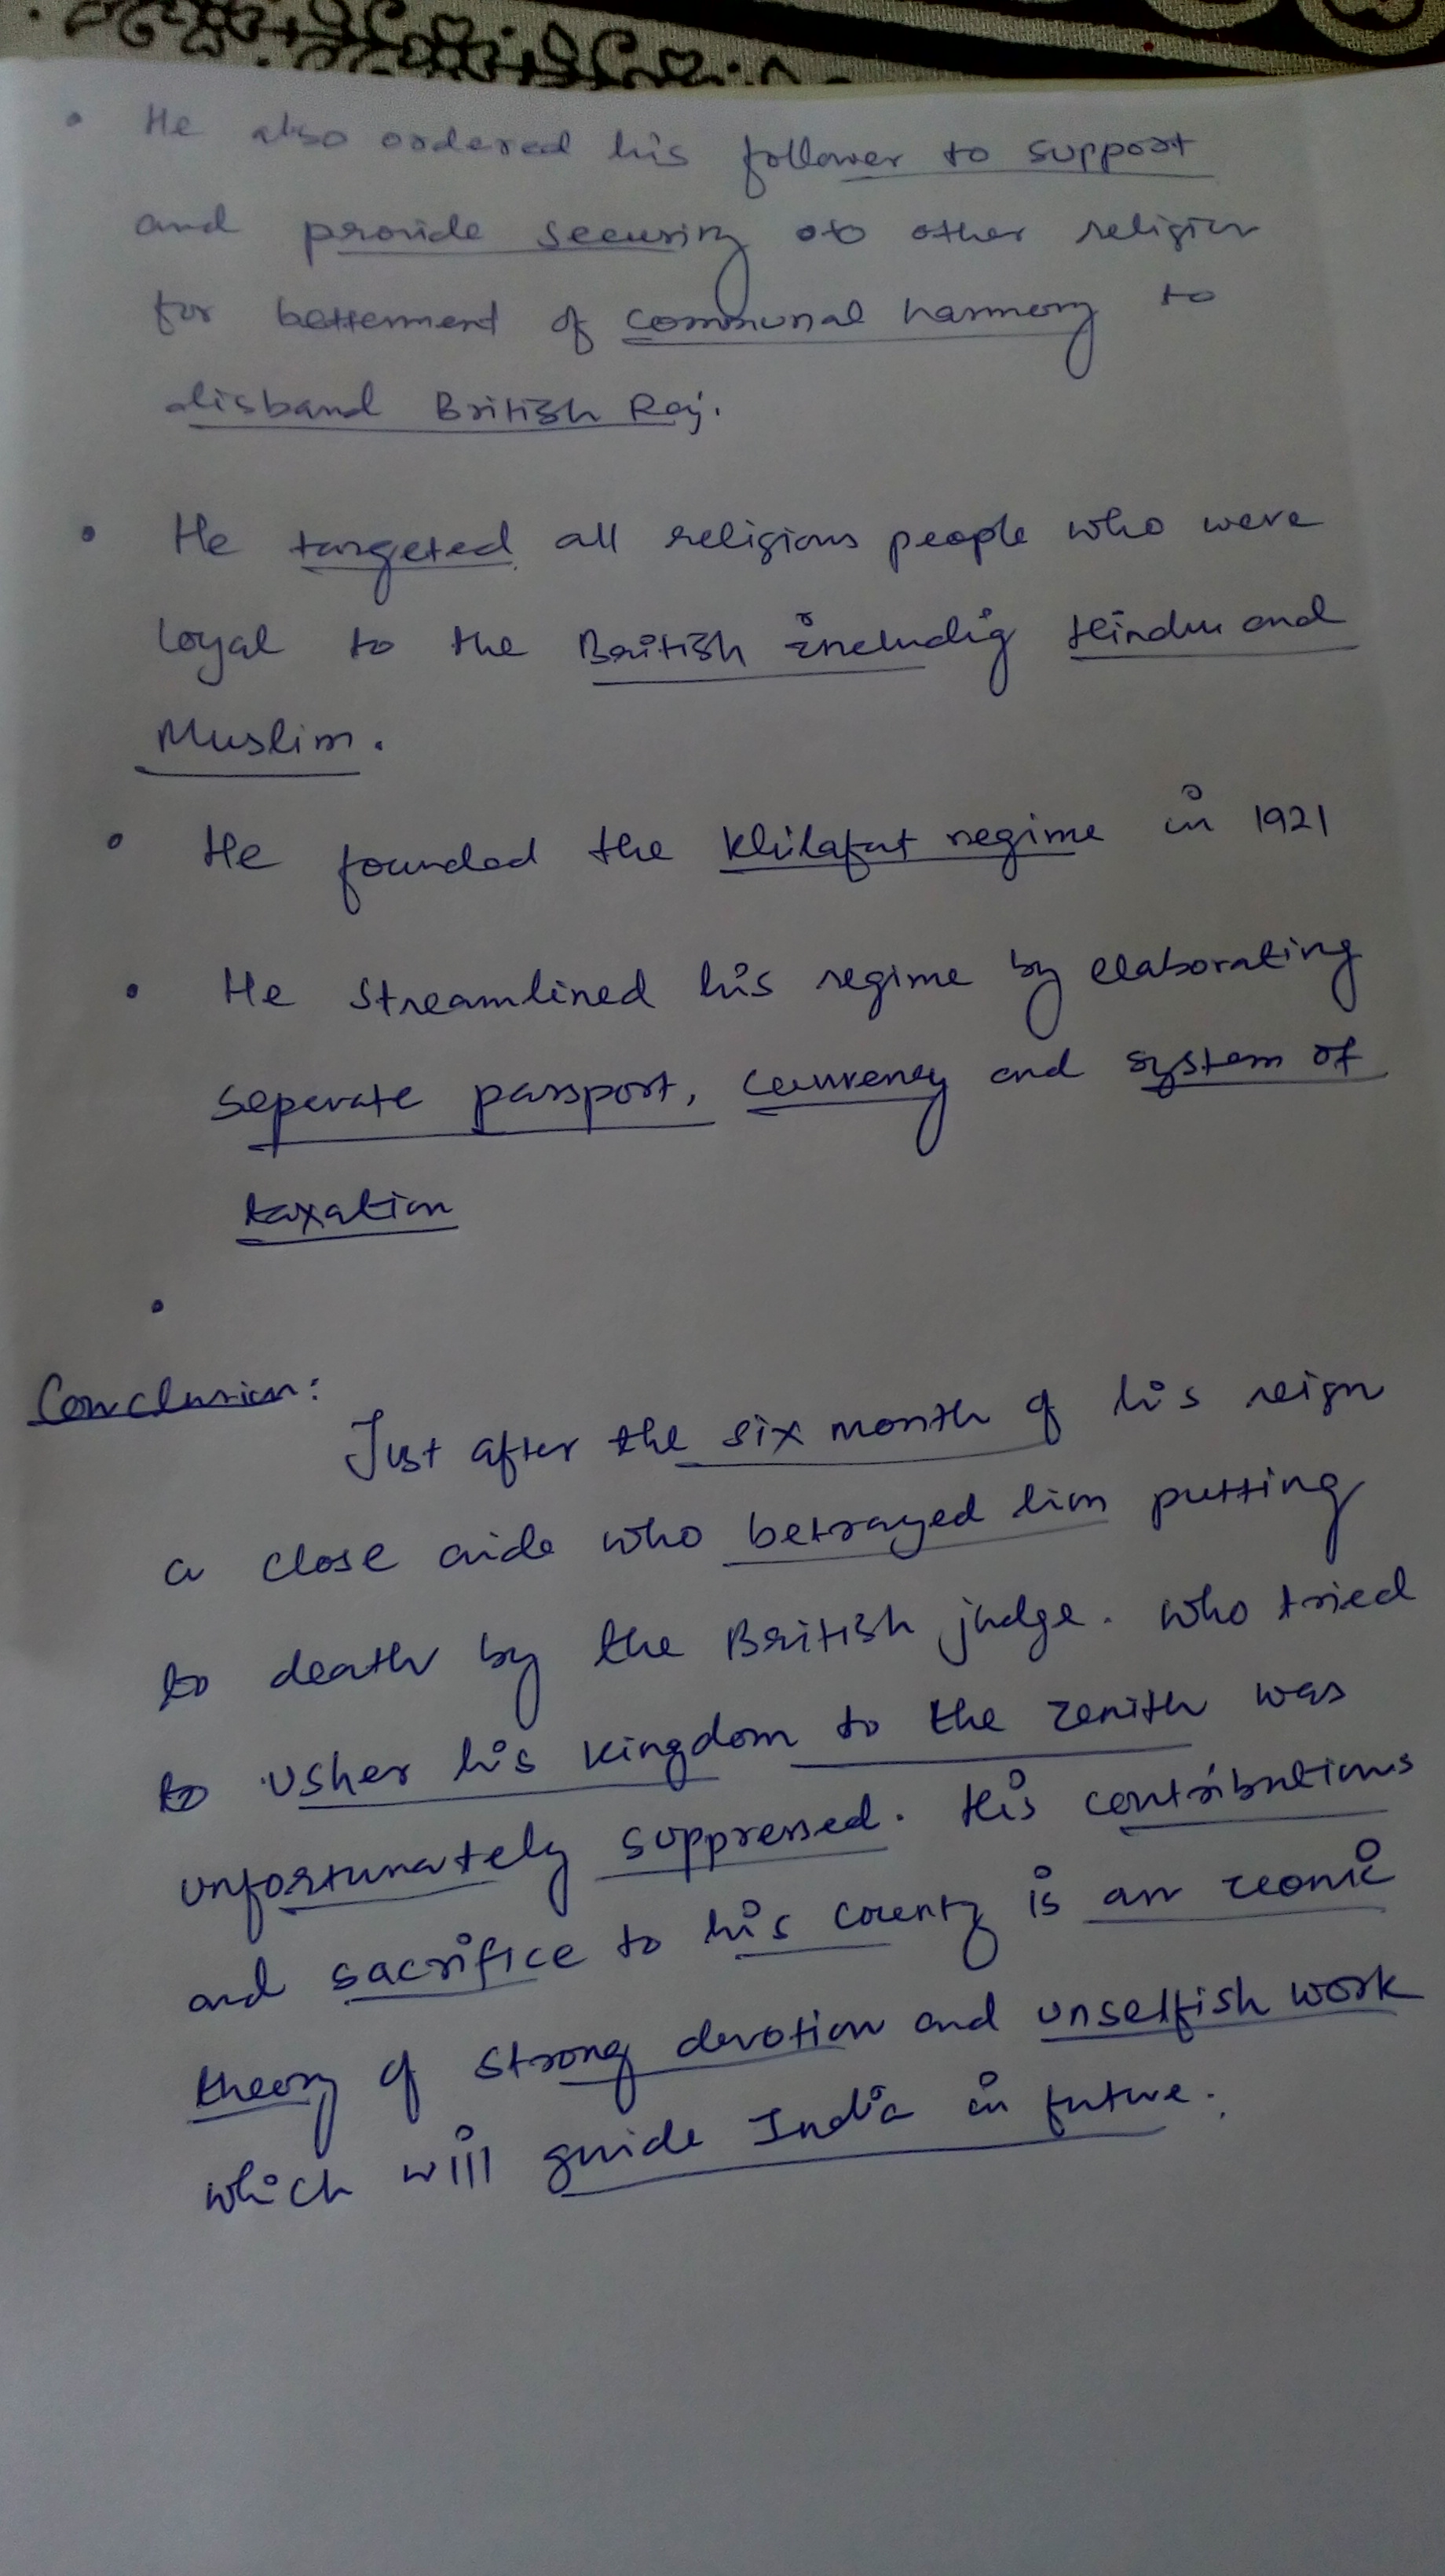 • He also ordered his follower to support
and provide security to other religion
for betterment of communal harmony to
disband British Raj.
• He targeted all religious people who were
loyal to the British includig Hindu and
Muslim.
• He founded the Khilafat regime in 1921
• He streamlined his regime by elaborating
seperate passport, currency and system of
taxation
•
Conclusion:
Just after the six month of his reign
a close aide who betrayed him putting
to death by the British judge. who tried
to usher his kingdom to the zenith was
unfortunately suppressed. His contributions
and sacrifice to his county is an iconic
theory of strong devotion and unselfish work
which will guide India in future.